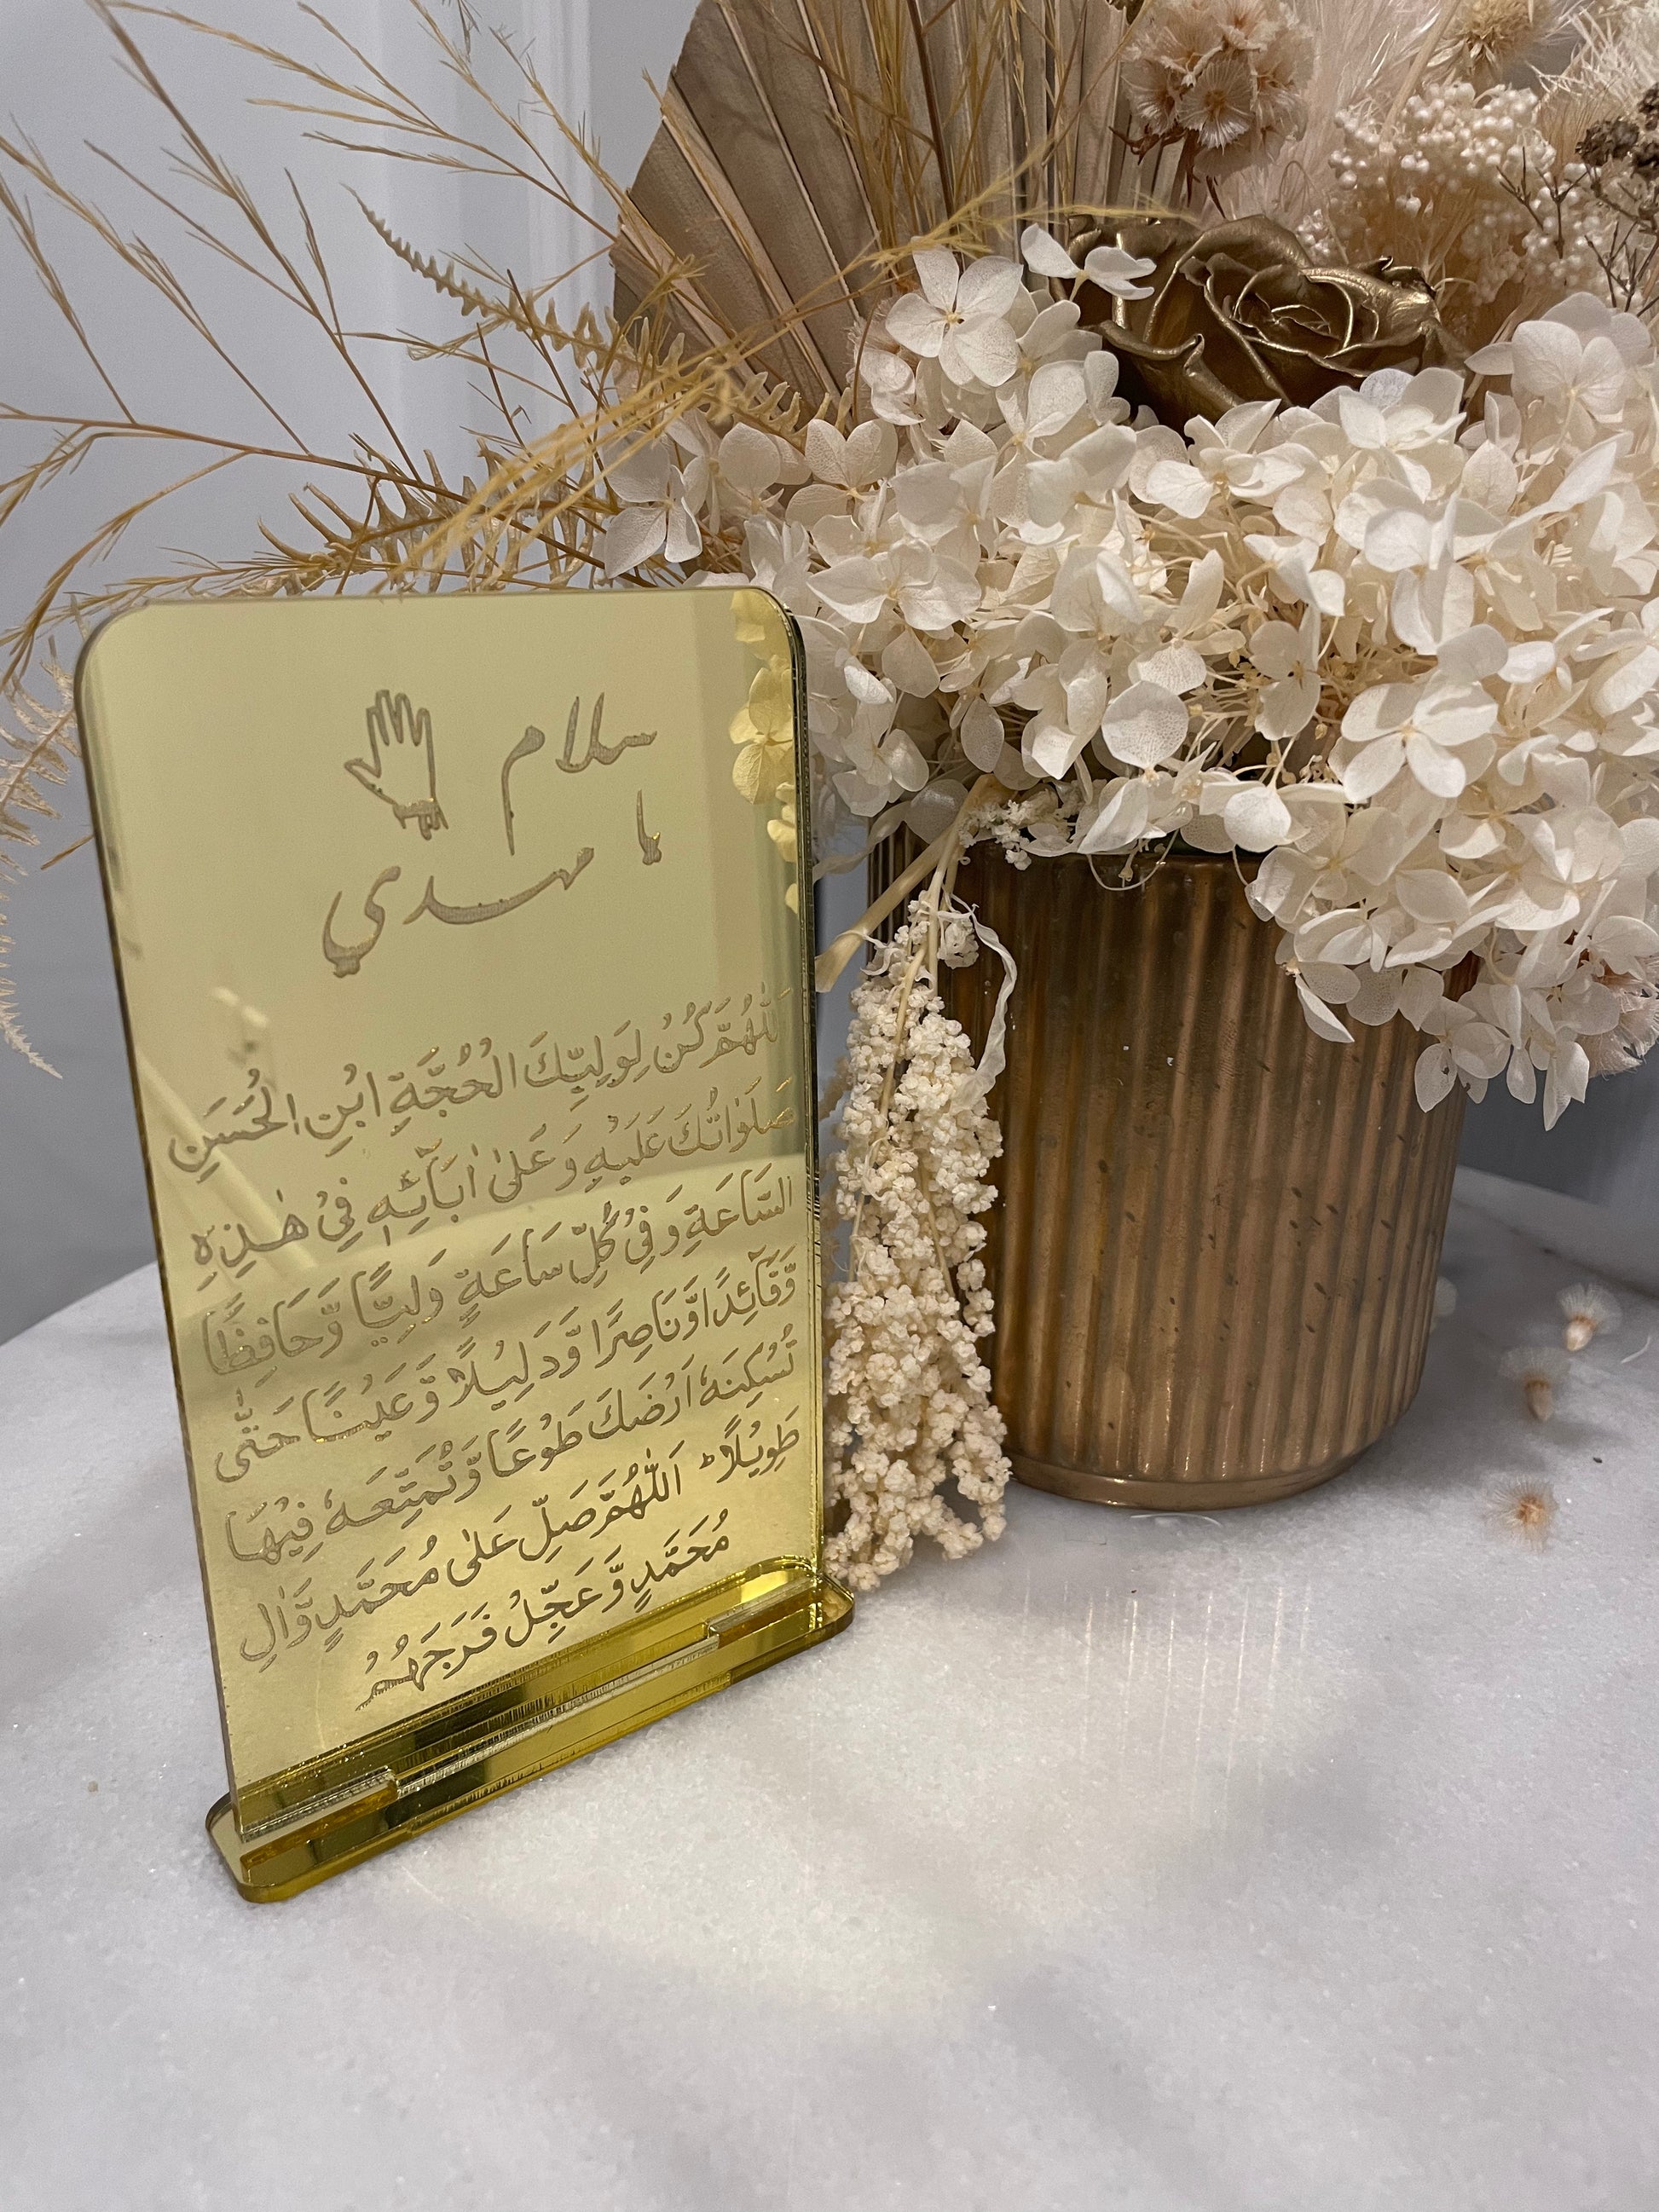 سلام
يا مهدي
اَللّٰهُمَّ كُنْ لِوَلِيِّكَ الْحُجَّةِ ابْنِ الْحَسَنِ
صَلَوَاتُكَ عَلَيْهِ وَعَلىٰ اٰبَآئِهٖ فِيْ هٰذِهِ
السَّاعَةِ وَفِيْ كُلِّ سَاعَةٍ وَلِيًّا وَّحَافِظًا
وَّقَآئِدًا وَّنَاصِرًا وَّدَلِيْلًا وَّعَيْنًا حَتّٰى
تُسْكِنَهٗ اَرْضَكَ طَوْعًا وَّتُمَتِّعَهٗ فِيْهَا
طَوِيْلًا ؕ اَللّٰهُمَّ صَلِّ عَلٰى مُحَمَّدٍ وَّاٰلِ
مُحَمَّدٍ وَّعَجِّلْ فَرَجَهُمْ